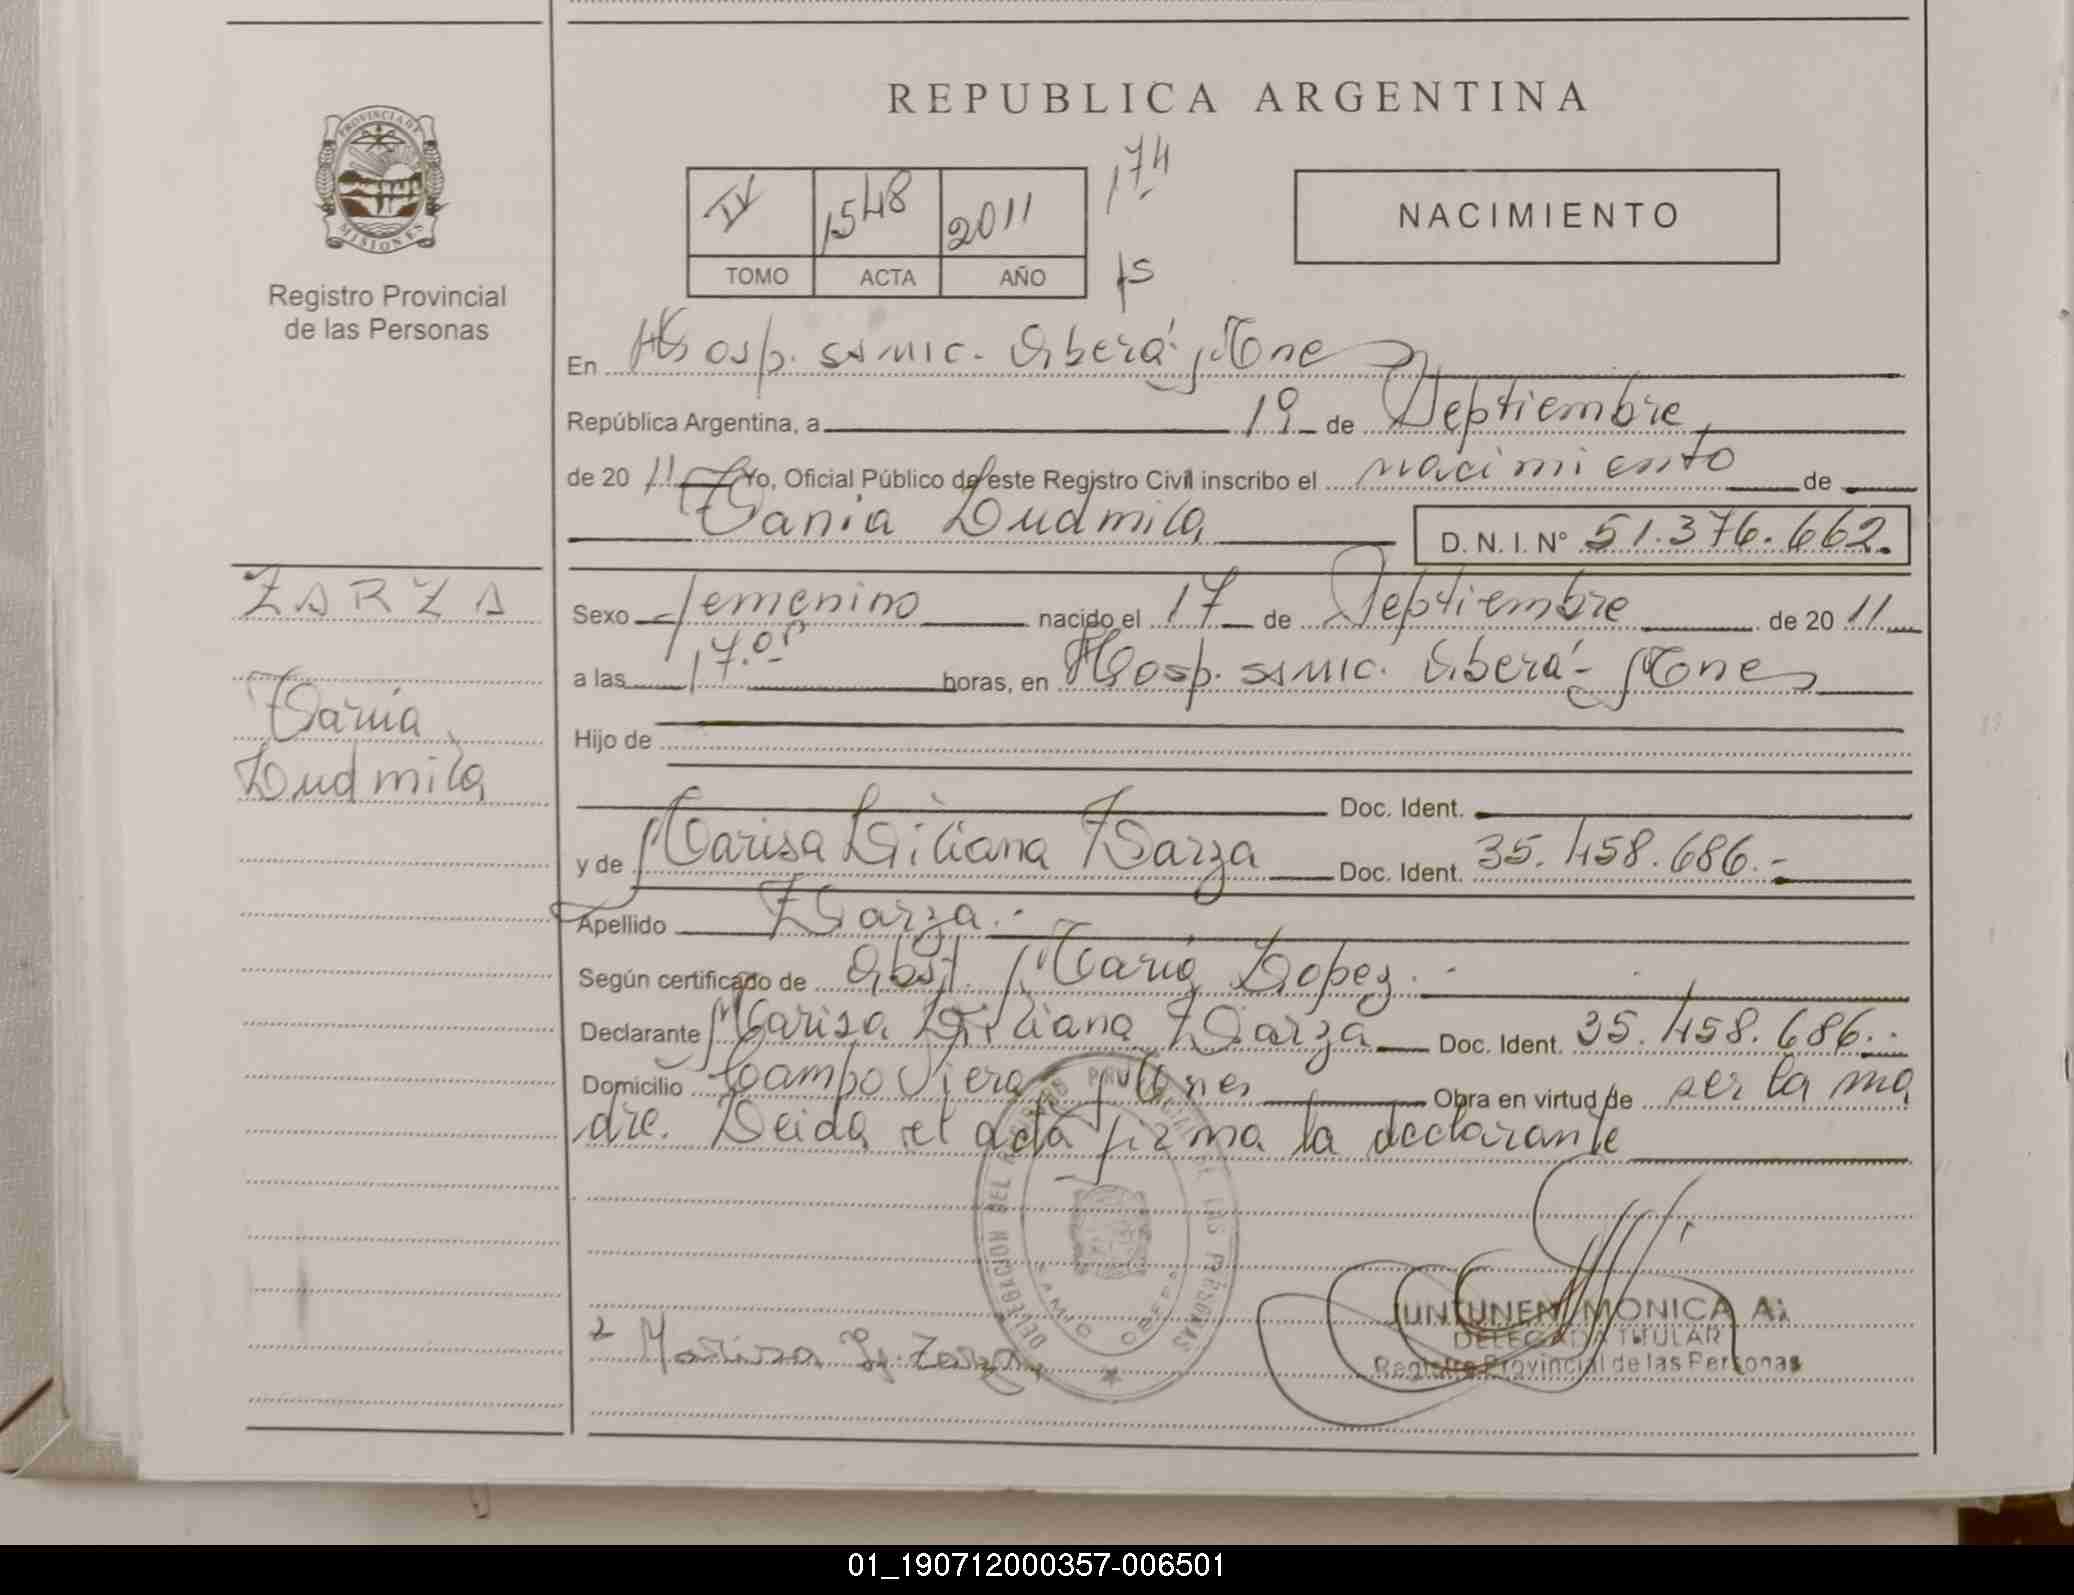 REPUBLICA ARGENTINA
PROVINCIA DE
MISIONES
Registro Provincial
de las Personas
IV 1548 2011
TOMO ACTA AÑO
174
NACIMIENTO
En Hosp. SAMIC. Oberá- Mnes
República Argentina, a 19 de Septiembre
de 2011 Yo, Oficial Público de este Registro Civil inscribo el nacimiento de
Tania Ludmila D. N. I. N° 51.376.662.
ZARZA
Tania
Ludmila
Sexo femenino nacido el 17 de Septiembre de 2011
a las 17.05 horas, en Hosp. SAMIC. Oberá- Mnes
Hijo de
Doc. Ident.
y de Marisa Liliana Zarza Doc. Ident. 35.458.686.-
Apellido Zarza.-
Según certificado de Obst. María Lopez.-
Declarante Marisa Liliana Zarza Doc. Ident. 35.458.686.-
Domicilio Campo Viera Mnes Obra en virtud de ser la ma
dre. Leida el acta firma la declarante
DELEGACION DEL REGISTRO PROVINCIAL DE LAS PERSONAS
Marisa L. Zarza
JUNTUNEN MONICA A.
DELEGADA TITULAR
Registro Provincial de las Personas
01_190712000357-006501